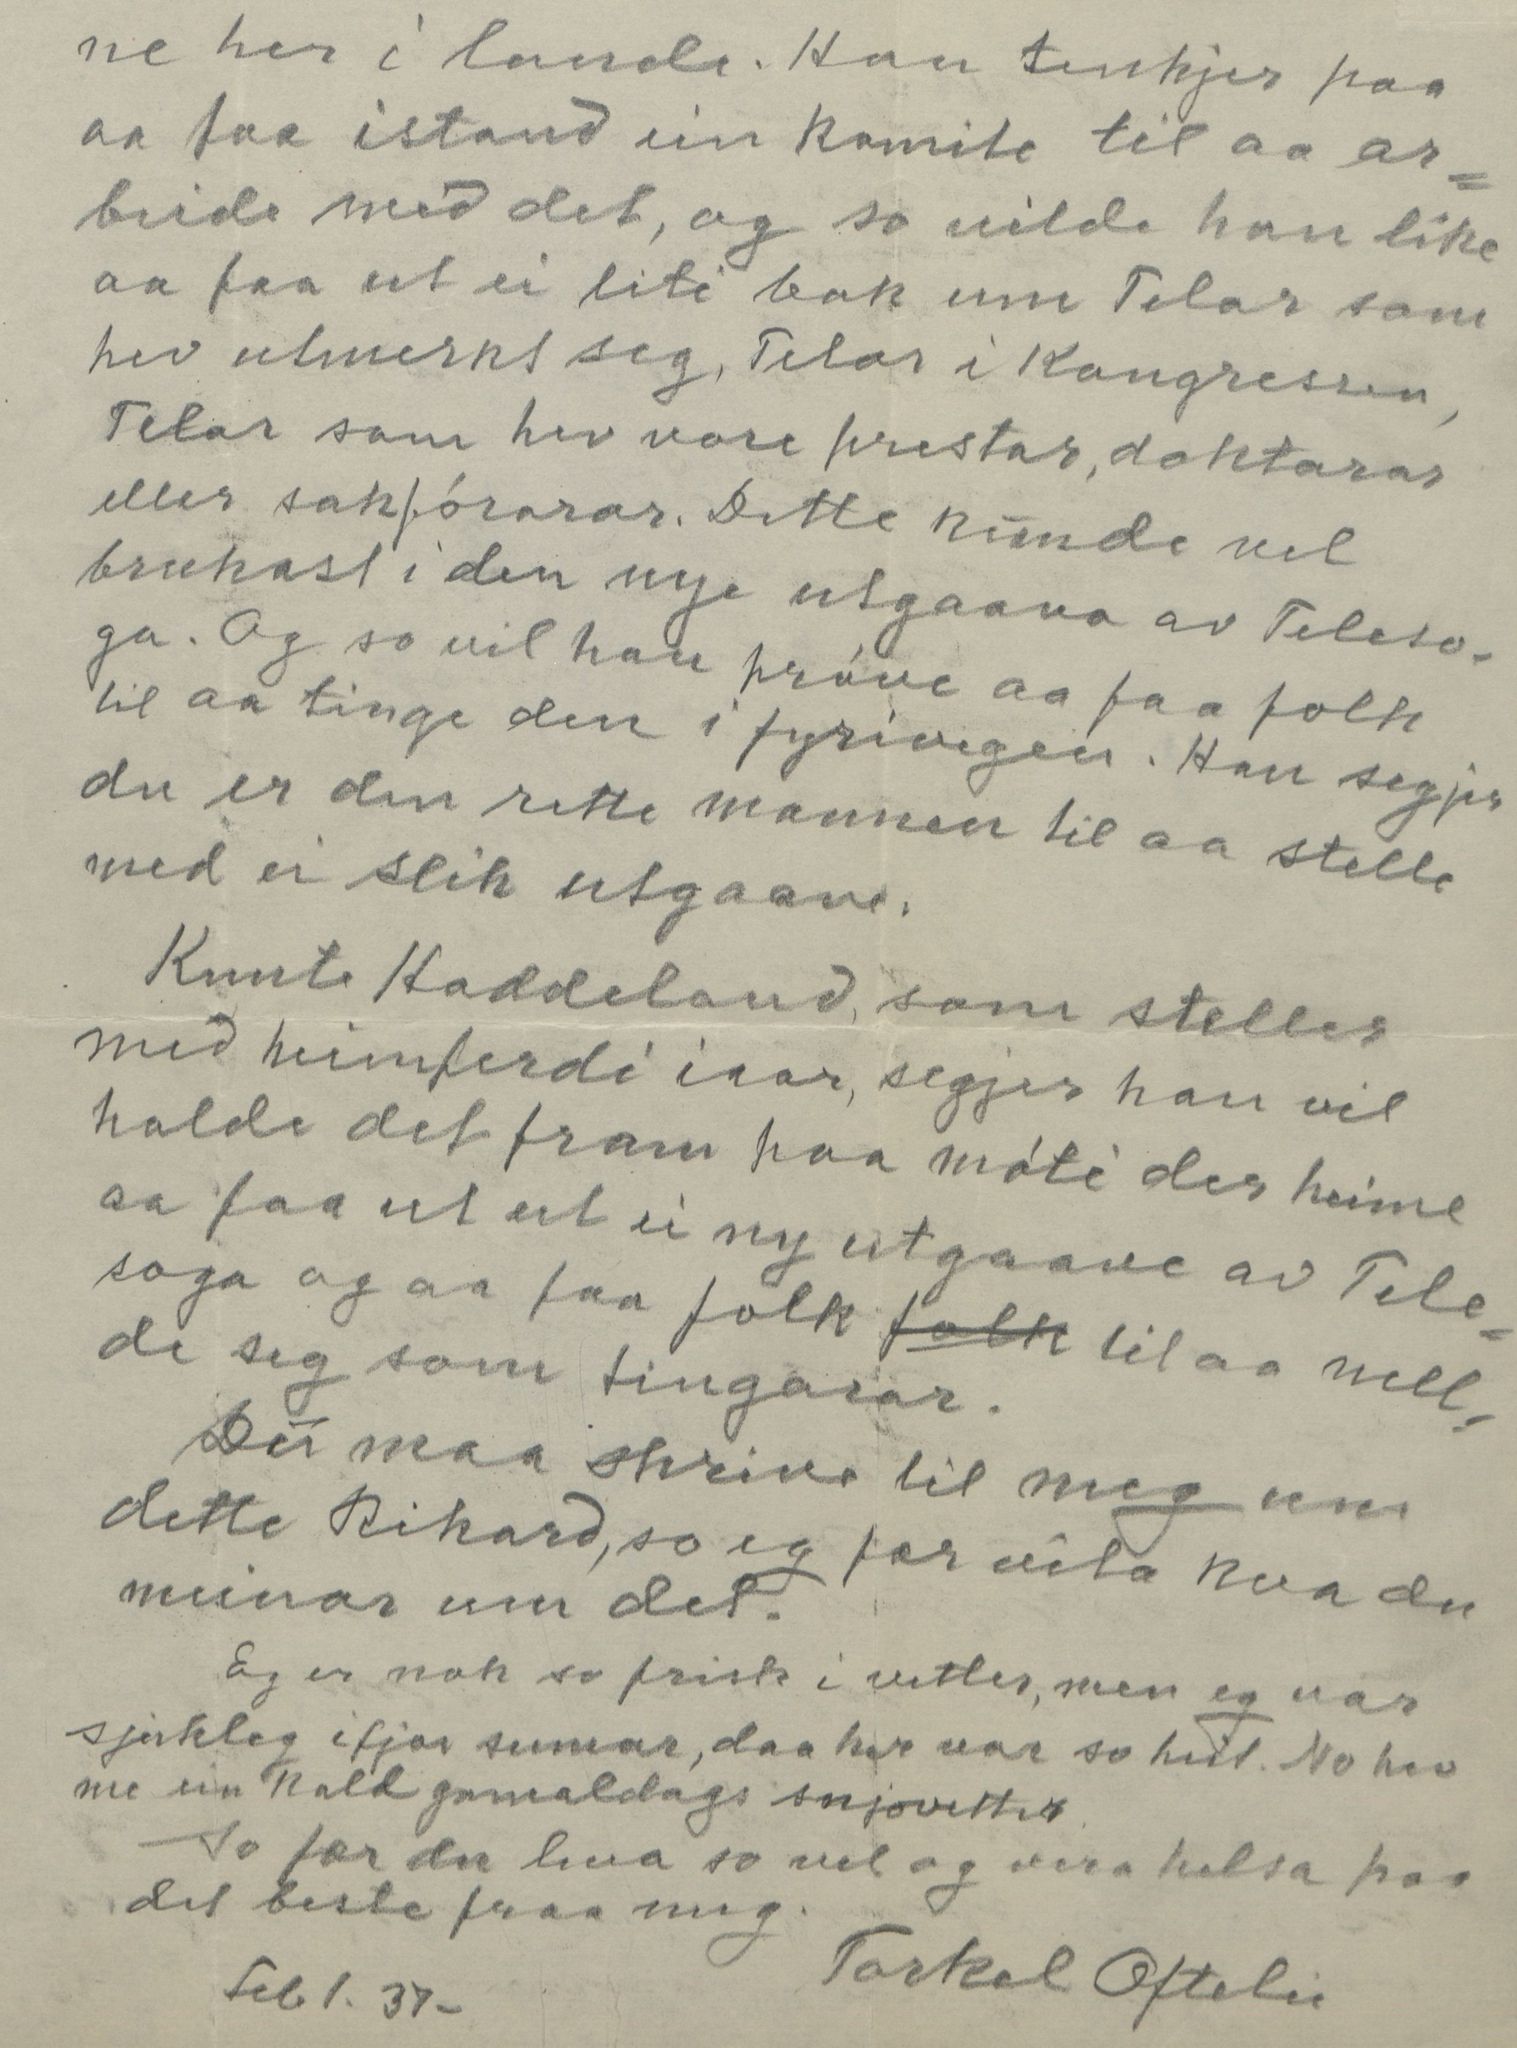 ne her i lande. Han tenkjer paa
aa faa istand ein Komite til aa ar=
beide med det, og so vilde han like
aa faa ut ei liti bok um Telar som
hev utmerkt seg, Telar i Kongressen,
Telar som hev vore prestar, doktarar
eller sakførarar. Dette kunde vel
brukast i den nye utgaava av Teleso-
ga. Og so vil han prøve aa faa folk
til aa tinge den i fyrivegen. Han segjer
du er den rette mannen til aa stelle
med ei slik utgaave.
Knute Haddeland, som steller
med heimferdi iaar, segjer han vil
halde det fram paa møti der heime
aa faa ut ut ei ny utgaave av Tele=
soga og aa faa folk folk til aa mell-
de seg som tingarar.
Du maa skrive til meg um
dette Rikard, so eg fær vita kva du
meinar um det.
Eg er nok so frisk i vetter, men eg var
sjukleg ifjor sumar, daa her var so heit. No hev
me ein kald gamaldags snjovetter.
So fær du leva so vel og vera helsa paa
det beste fraa meg.
Torkel Oftelie
Feb 1. 37-